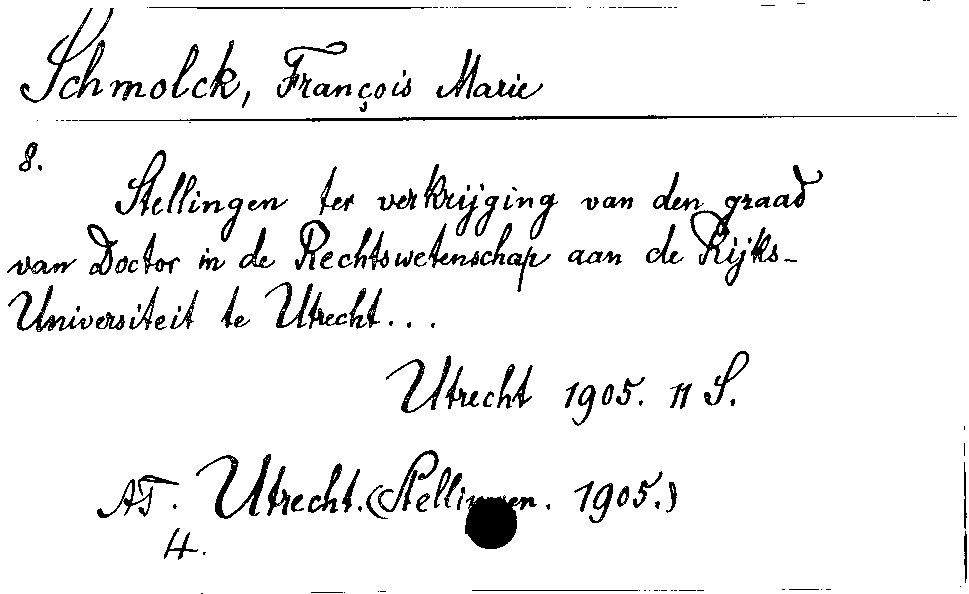 Schmolck, François Marie
8.
Stellingen ter verkrijging van den graad
van Doctor in de Rechtswetenschap aan de Rijks-
Universiteit te Utrecht...
Utrecht 1905. 11 S.
AT. Utrecht. (Stellingen. 1905.)
4.